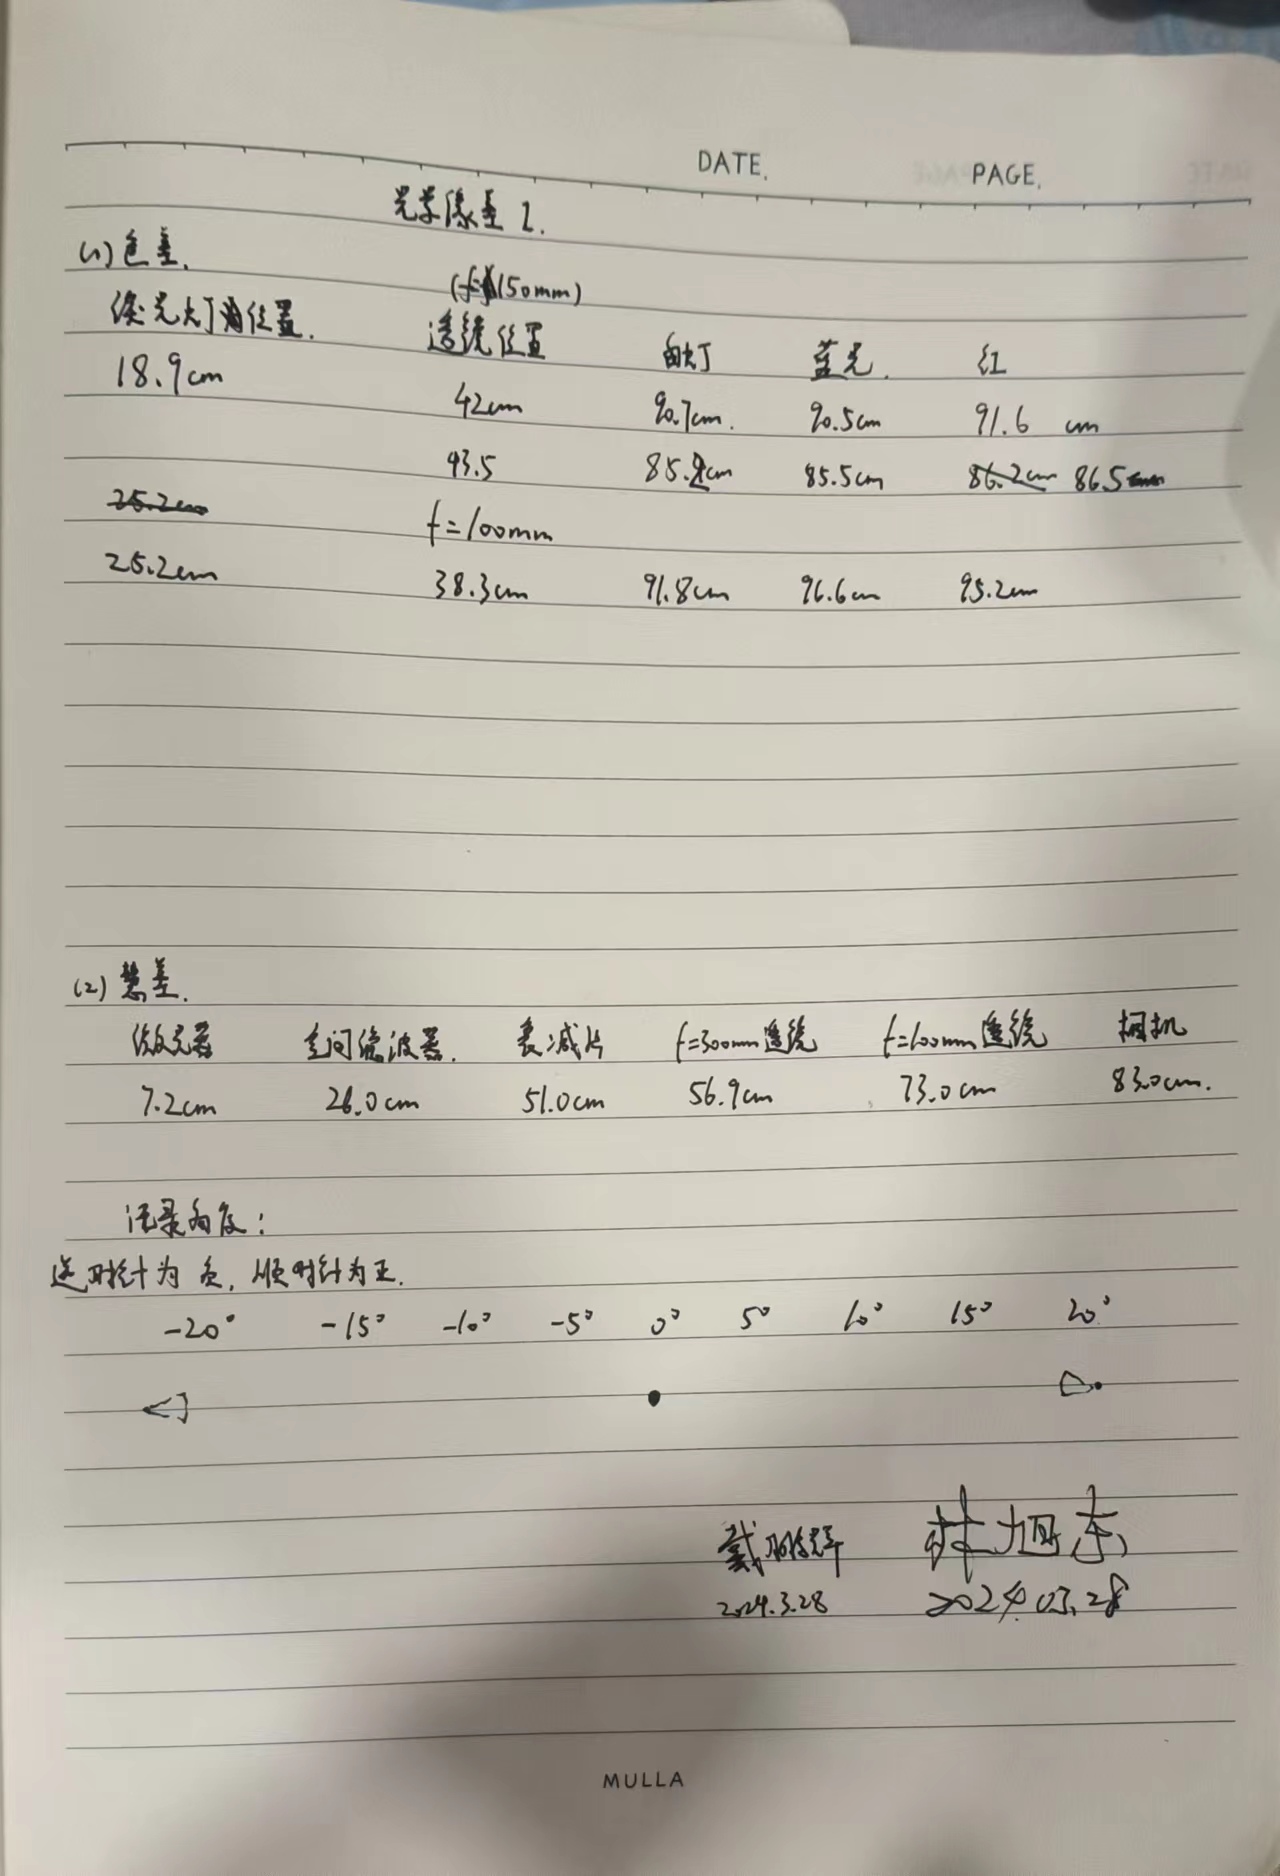 DATE. PAGE.
光学像差 2.
(1) 色差.
(f=150mm)
位置. 透镜位置 白灯 蓝光. 红
18.9cm 42cm 90.7cm. 90.5cm 91.6 cm
43.5 85.2cm 85.5cm 86.2cm 86.5cm
25.2cm f=100mm
25.2cm 38.3cm 91.8cm 96.6cm 95.2cm
(2) 慧差.
激光器 空间滤波器. 衰减片 f=300mm透镜 f=100mm透镜 相机
7.2cm 26.0cm 51.0cm 56.9cm 73.0cm 83.0cm.
记录角度:
逆时针为负, 顺时针为正.
-20° -15° -10° -5° 0° 5° 10° 15° 20°
林旭东
2024.3.28 2024.03.28
MULLA